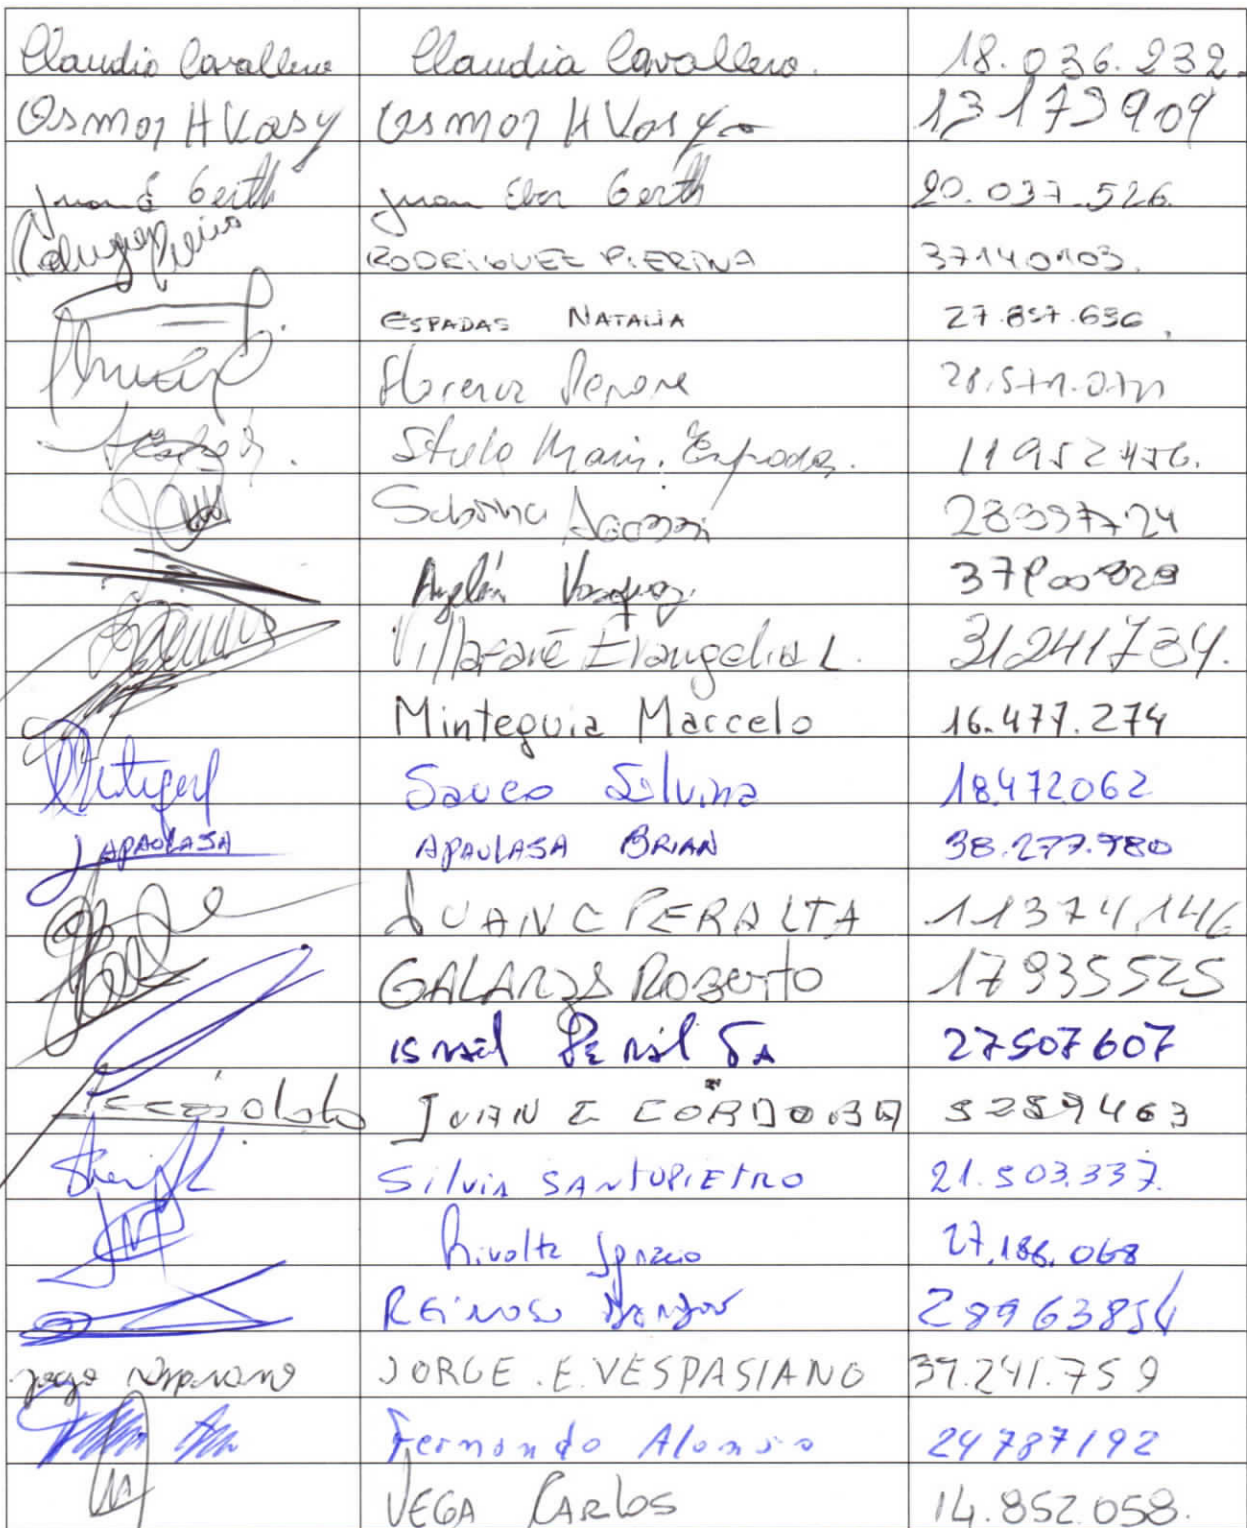 Claudia Cavallero Claudia Cavallero. 18.036.232.
Osmar H Kasy Osmar H Kasy 13173909
Juan E Gerth Juan Eber Gerth 20.037.526
RODRIGUEZ PIERINA 37140103.
ESPADAS NATALIA 27.857.636
Florencia 28.571.071
Stella Maris Espadas. 11952476.
Sabina 28397724
Ayelén Vazquez
Villafañe Evangelina L. 31241734.
Minteguia Marcelo 16.477.274
Sauco Silvina 18.472.062
APAOLASA APAULASA BRIAN 38.277.980
JUAN C PERALTA 11374,146
GALARZA ROBERTO 17935525
ISRAEL PERALTA 27507607
JUAN E CORDOBA 5259463
Silvia SANTOPIETRO 21.503.337.
Rivolta Ignacio 27.186.068
REINOSO 28963854
Jorge Vespasiano JORGE.E.VESPASIANO 39.241.759
Fernando Alonso 24787192
VEGA CARLOS 14.852.058.